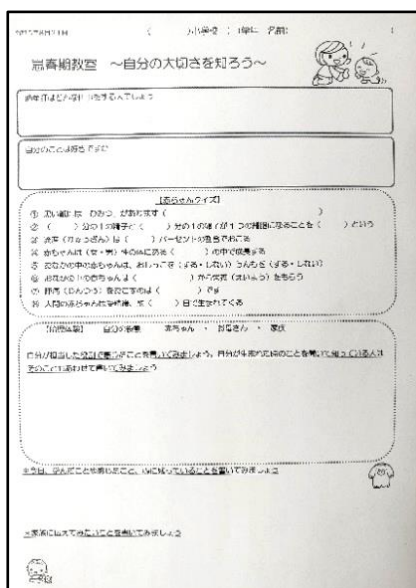 小学校
名前
思春期教室 ～自分の大切さを知ろう～
自分のことは好きですか
【赤ちゃんクイズ】
② （ ）分の1の精子と（ ）分の1の卵子が1つの細胞になることを（ ）という
③ 流産（りゅうざん）は（ ）パーセントの割合でおこる
④ 赤ちゃんは（女・男）の体にある（ ）の中で成長する
⑤ おなかの中の赤ちゃんは、おしっこを（する・しない）うんちを（する・しない）
⑥ おなかの中の赤ちゃんは（ ）から栄養（えいよう）をもらう
⑦ 陣痛（じんつう）をおこすのは（ ）です
⑧ 人間の赤ちゃんは（ ）日で生まれてくる
赤ちゃん ・ お母さん ・ 家族
自分が担当した役割で思うことを書いてみましょう。自分が生まれた時のことを聞いて知っている人は
そのこともあわせて書いてみましょう
＊今日、学んだことや感じたこと、心に残っていることを書いてみましょう
＊家族に伝えてみたいことを書いてみましょう